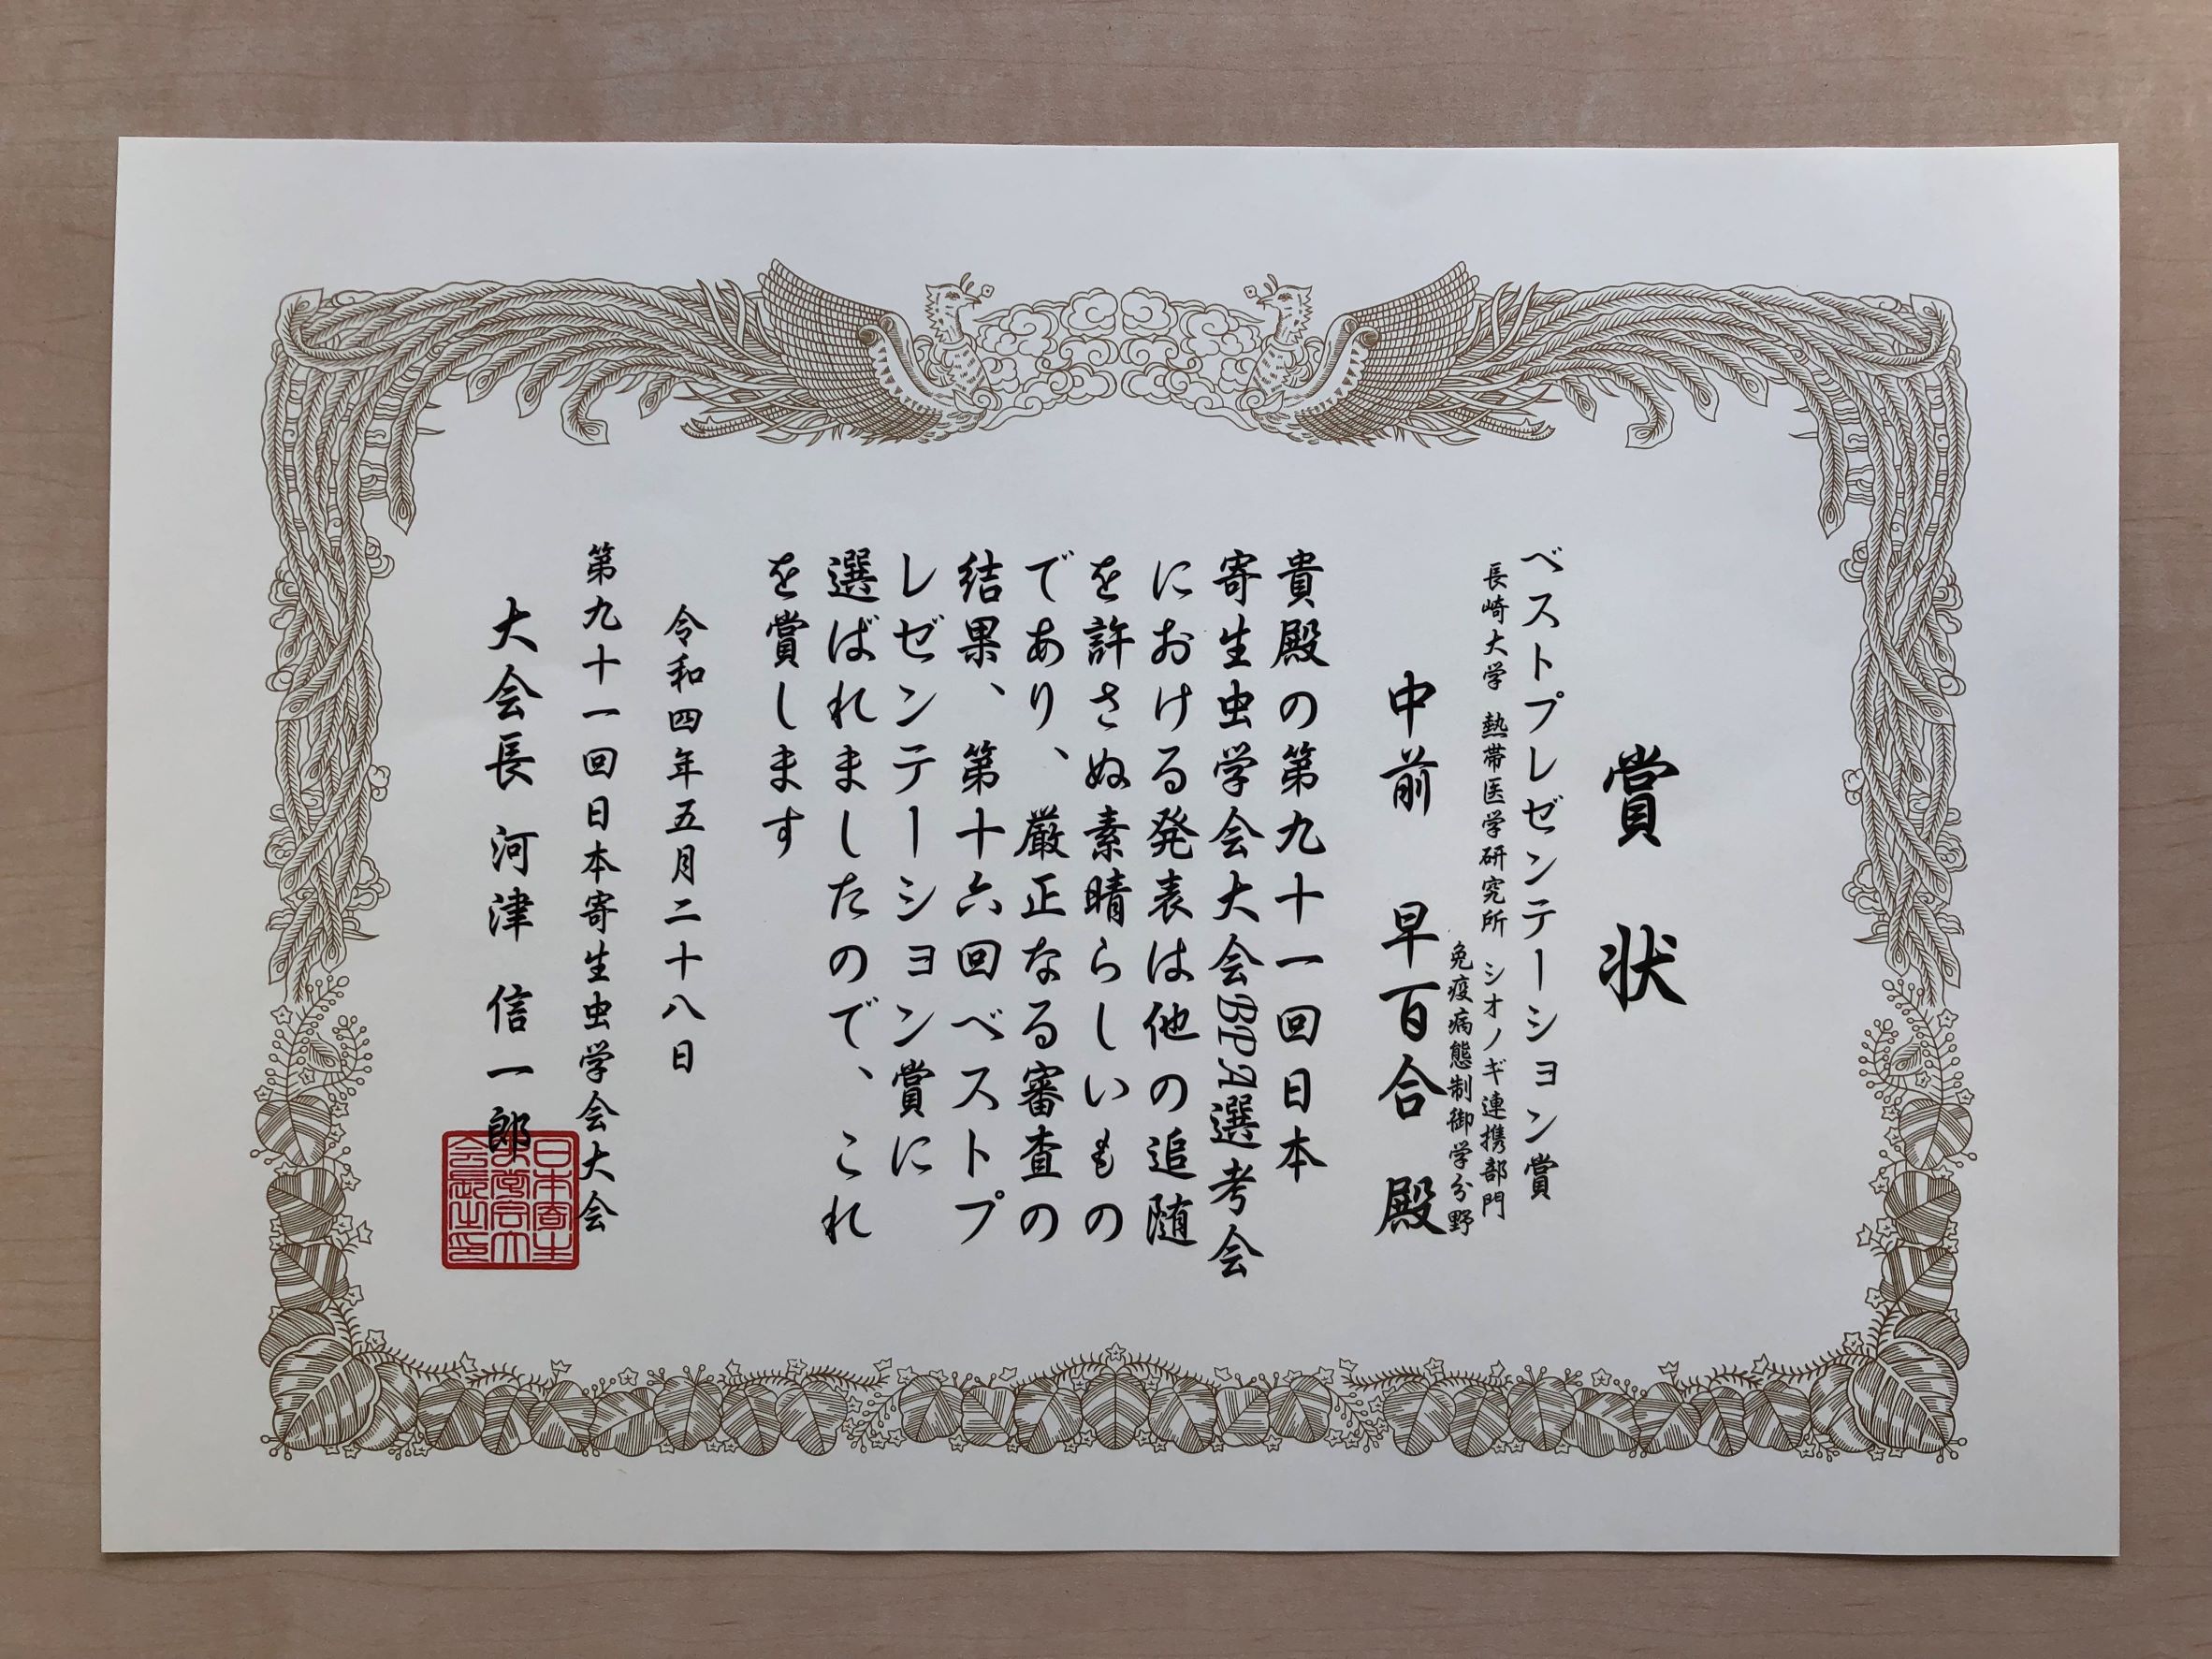 賞状
ベストプレゼンテーション賞
長崎大学 熱帯医学研究所 シオノギ連携部門
免疫病態制御学分野
中前 早百合 殿
貴殿の第九十一回日本
寄生虫学会大会BPA選考会
における発表は他の追随
を許さぬ素晴らしいもの
であり、厳正なる審査の
結果、第十六回ベストプ
レゼンテーション賞に
選ばれましたので、これ
を賞します
令和四年五月二十八日
第九十一回日本寄生虫学会大会
大会長 河津 信一郎